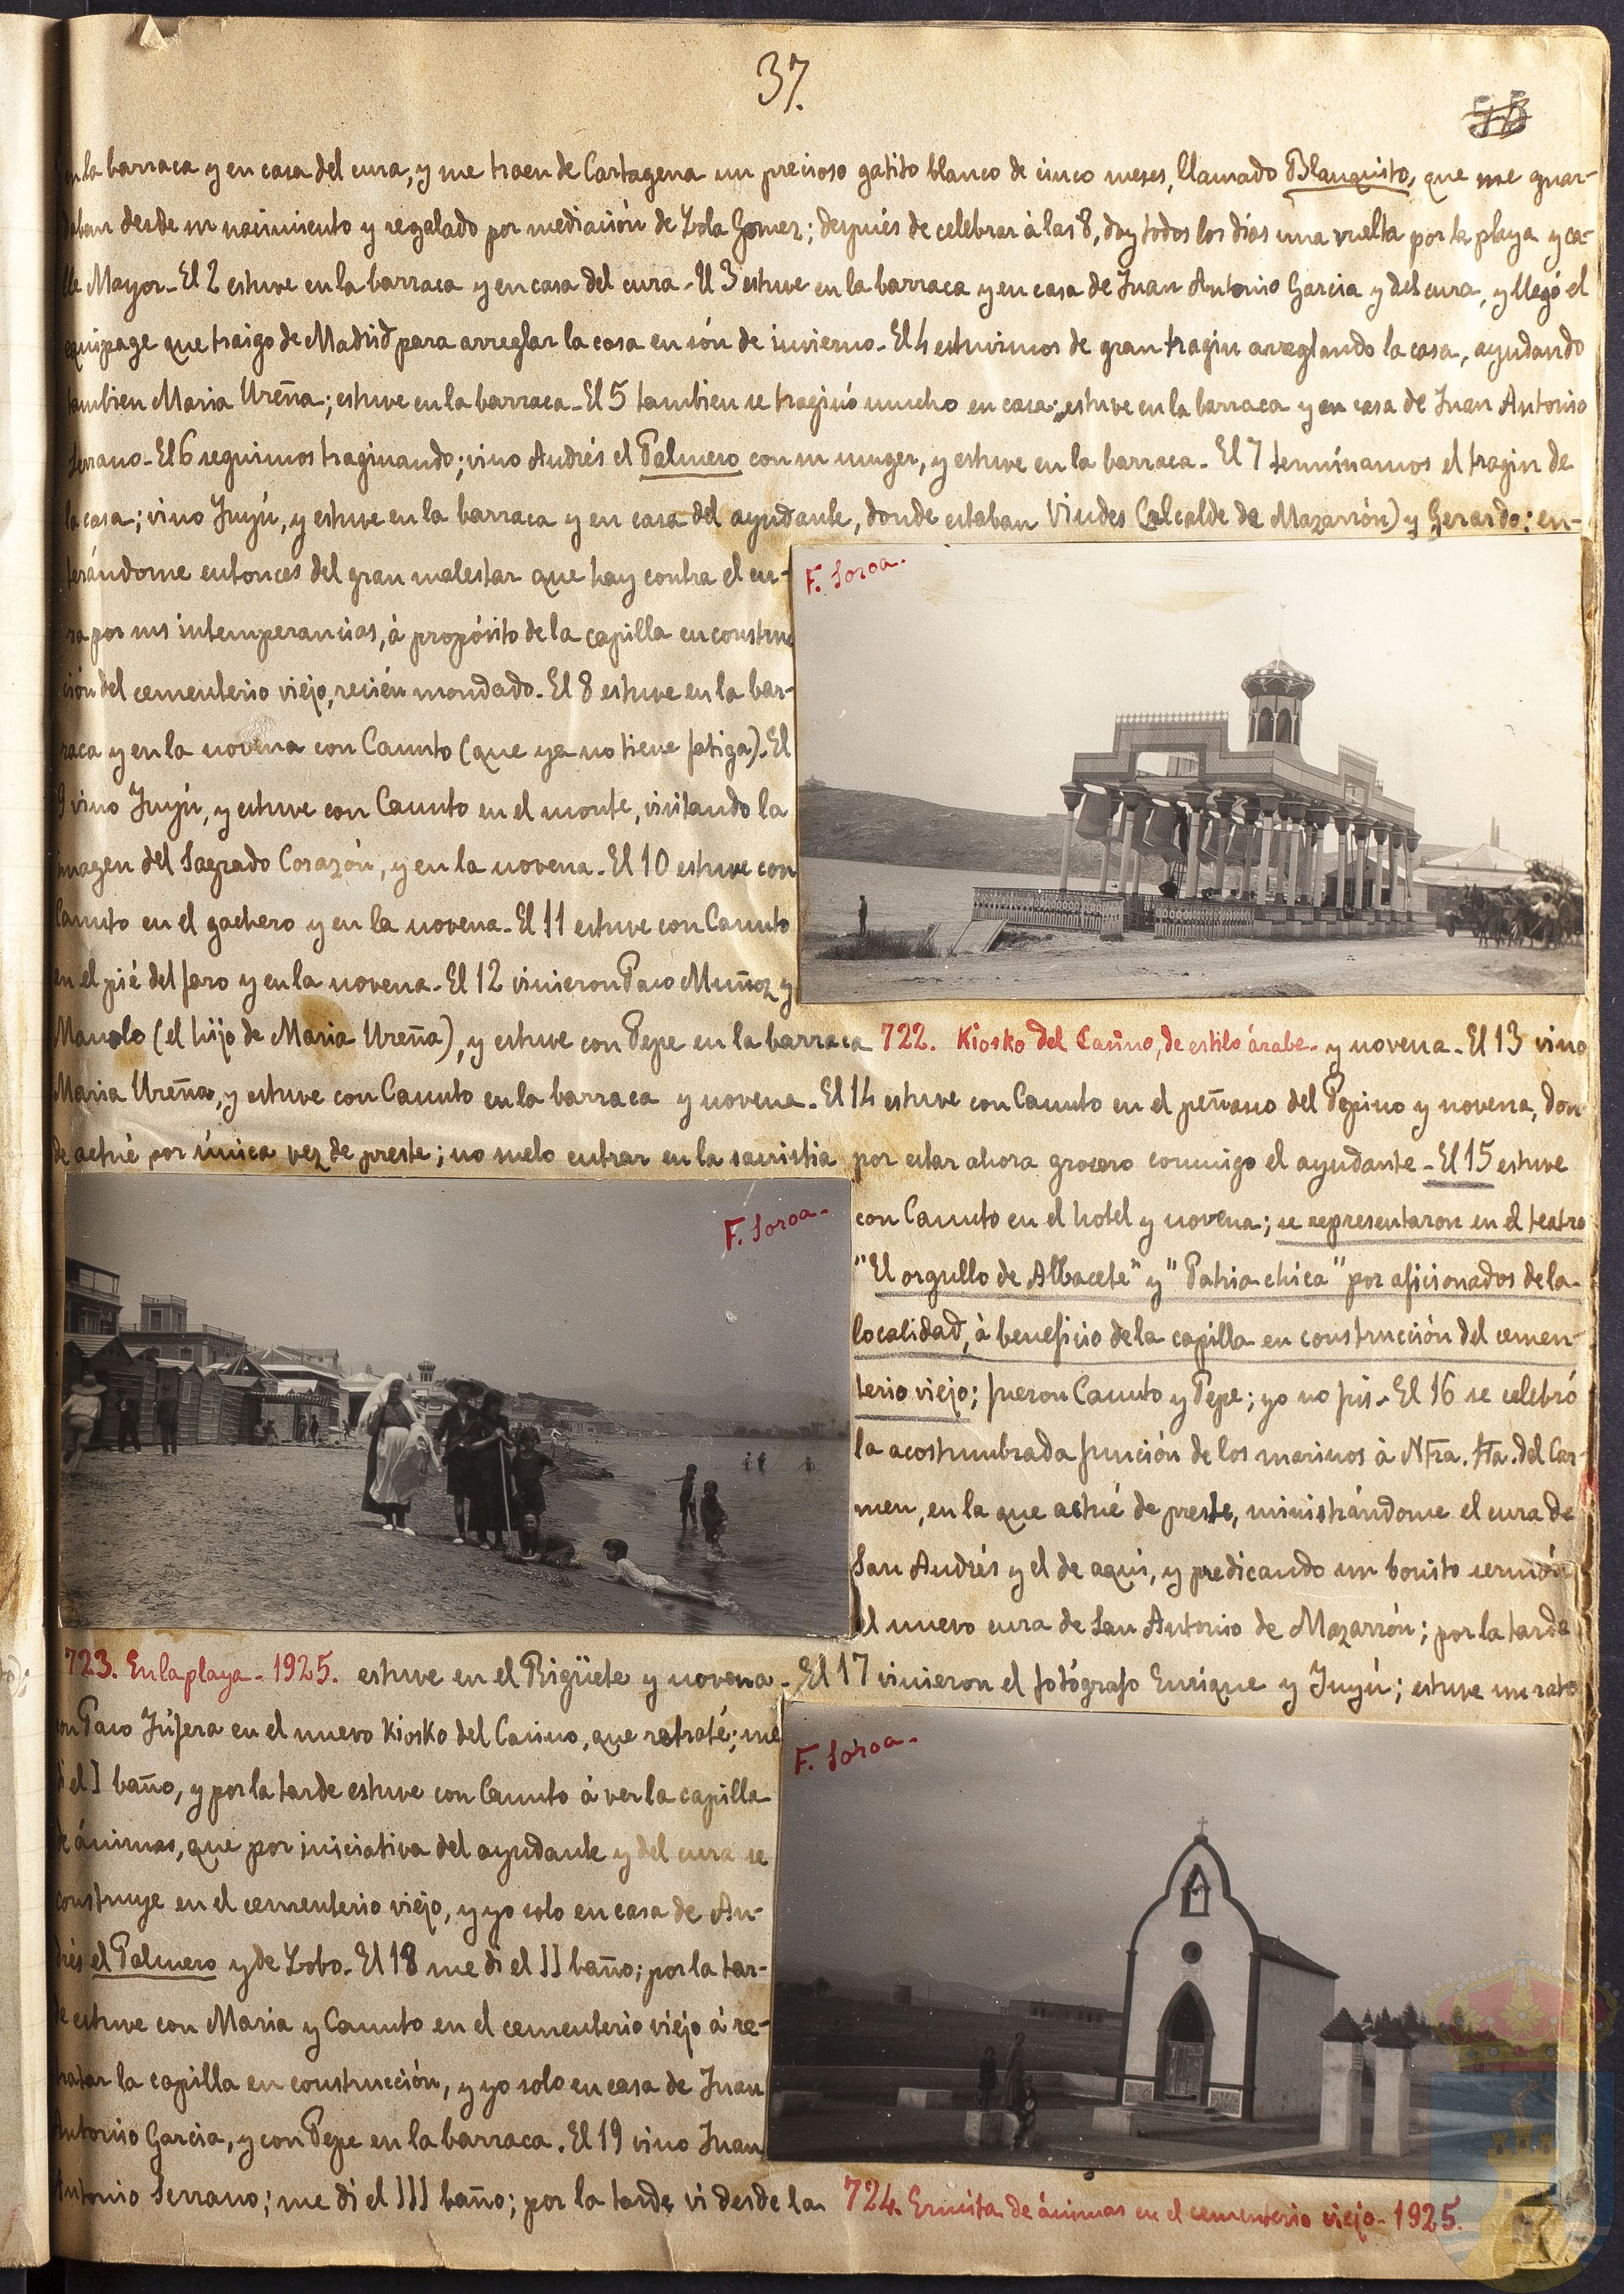 37.
en la barraca y en casa del cura, y me traen de Cartagena un precioso gatito blanco de cinco meses, llamado Blanquito, que me guar-
daban desde su nacimiento y regalado por mediación de Lola Gomez; después de celebrar à las 8, doy todos los dias una vuelta por la playa y ca-
lle Mayor. El 2 estuve en la barraca y en casa del cura. El 3 estuve en la barraca y en casa de Juan Antonio Garcia y del cura, y llegó el
equipage que traigo de Madrid para arreglar la casa en són de invierno. El 4 estuvimos de gran tragin arreglando la casa, ayudando
tambien Maria Ureña; estuve en la barraca. El 5 tambien se traginó mucho en casa; estuve en la barraca y en casa de Juan Antonio
Serrano. El 6 seguimos traginando; vino Andrés el Palmero con su muger, y estuve en la barraca. El 7 terminamos el tragin de
la casa; vino Juyú, y estuve en la barraca y en casa del ayudante, donde estaban Viudes (alcalde de Mazarrón) y Gerardo; en-
terándome entonces del gran malestar que hay contra el cu-
ra por sus intemperancias, à propósito de la capilla en construc
ción del cementerio viejo, recién mondado. El 8 estuve en la bar-
raca y en la novena con Canuto (que ya no tiene fatiga). El
9 vino Juyú, y estuve con Canuto en el monte, visitando la
imagen del Sagrado Corazón, y en la novena. El 10 estuve con
Canuto en el gachero y en la novena. El 11 estuve con Canuto
en el pié del faro y en la novena. El 12 vinieron Paco Muñoz y
F. Soroa.
Manolo (el hijo de Maria Ureña), y estuve con Pepe en la barraca 722. Kiosko del Casino, de estilo árabe. y novena. El 13 vino
Maria Ureña, y estuve con Canuto en la barraca y novena. El 14 estuve con Canuto en el peñasco del Pepino y novena, don-
de actué por única vez de preste; no suelo entrar en la sacristia por estar ahora grosero conmigo el ayudante. El 15 estuve
F. Soroa.
con Canuto en el hotel y novena; se representaron en el teatro
"El orgullo de Albacete" y "Patria chica" por aficionados de la
localidad, à beneficio de la capilla en construcción del cemen-
terio viejo; fueron Canuto y Pepe; yo no fuí. El 16 se celebró
la acostumbrada función de los marinos à Ntra. Sta. del Car-
men, en la que actué de preste, ministrándome el cura de
San Andrés y el de aqui, y predicando un bonito sermón
el nuevo cura de San Antonio de Mazarrón; por la tarde
723. En la playa. 1925. estuve en el Rigüete y novena. El 17 vinieron el fotógrafo Enrique y Juyú; estuve un rato
con Paco Júfera en el nuevo Kiosko del Casino, que retraté; me
di el I baño, y por la tarde estuve con Canuto à ver la capilla
de ánimas, que por iniciativa del ayudante y del cura se
construye en el cementerio viejo, y yo solo en casa de An-
drés el Palmero y de Lobo. El 18 me di el II baño; por la tar-
de estuve con Maria y Canuto en el cementerio viejo à re-
tratar la capilla en construcción, y yo solo en casa de Juan
Antonio Garcia, y con Pepe en la barraca. El 19 vino Juan
F. Soroa.
Antonio Serrano; me di el III baño; por la tarde vi desde la 724. Ermita de ánimas en el cementerio viejo. 1925.